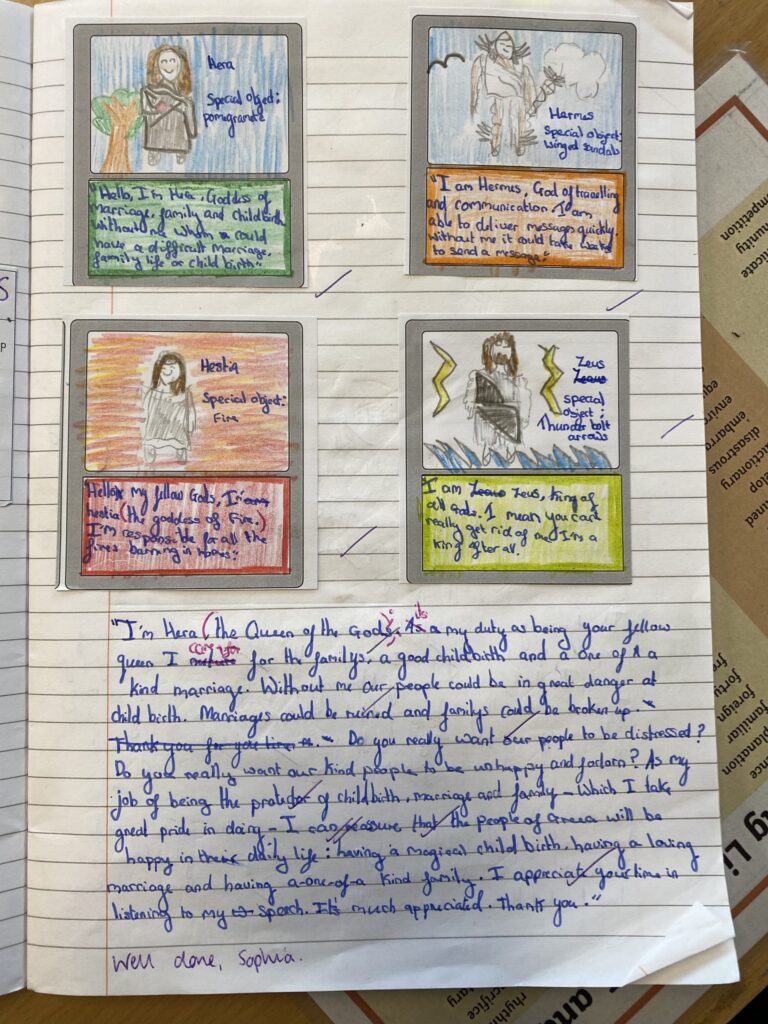 Hera
Special object:
pomegranate
"Hello, I'm Hera, Goddess of
marriage, family and childbirth
without me whom could
have a difficult marriage,
family life or child birth."
Hermes
Special object:
winged sandals
"I am Hermes, God of travelling
and communication. I am
able to deliver messages quickly.
Without me it could take weeks
to send a message."
Hestia
Special object:
Fire
Hello my fellow Gods, I'm
hestia (the goddess of Fire.)
I'm responsible for all the
fires burning in Homes."
Zeus
special
object:
Thunder bolt
arrows
I am Zeus, King of
all Gods. I mean you cant
really get rid of me I'm a
king after all.
"I'm Hera (the Queen of the Gods); As a my duty as being your fellow
queen I care for for the familys, a good childbirth and a one of a
kind marriage. Without me our people could be in great danger at
child birth. Marriages could be ruined and familys could be broken up."
Thank you for you time
Do you really want our people to be distressed?
Do you really want our kind people to be unhappy and forlorn? As my
job of being the protector of childbirth, marriage and family - which I take
great pride in doing - I can that the people of will be
happy in their daily life: having a magical child birth, having a loving
marriage and having a-one-of-a kind family. I appreciate your time in
listening to my speech. It's much appreciated. Thank you."
Well done, Sophia.
S
P
competition
community
disastrous
dictionary
forty
foreign
familiar
explanation
sacrifice
rhythm
and